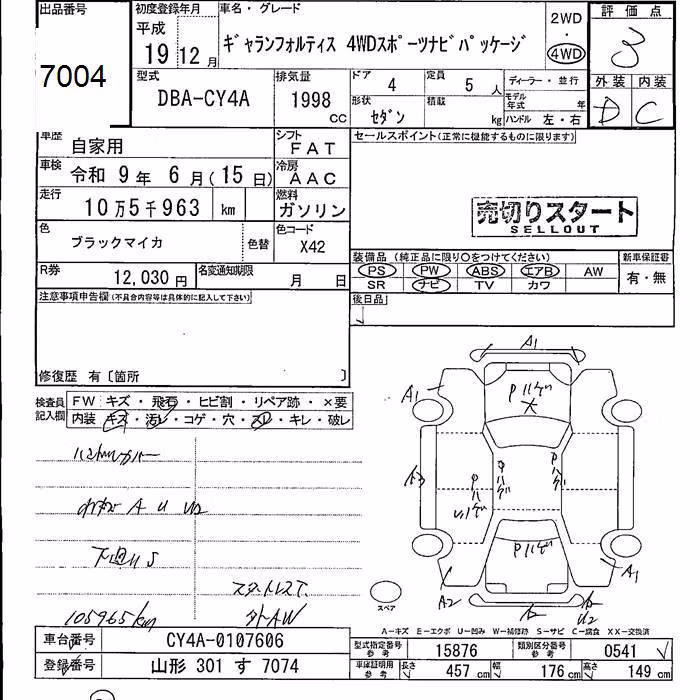 出品番号 初度登録年月 車名・グレード 2WD 評価点
7004 平成 19 12月 ギャランフォルティス 4WDスポーツナビパッケージ ・ 4WD 3
型式 排気量 ドア 4 定員 5 人 ディーラー・並行 外装 内装
DBA-CY4A 1998 cc 形状 セダン 積載 kg モデル年式 年 ハンドル 左・右 D C
車歴 自家用 シフト FAT セールスポイント(正常に機能するものに限ります)
車検 令和 9年 6月(15日) 冷房 AAC
走行 10万5千963 km 燃料 ガソリン
売切りスタート
SELLOUT
色 ブラックマイカ 色替 色コード X42
装備品(純正品に限り○をつけてください) 新車保証書
PS PW ABS エアB AW 有・無
SR ナビ TV カワ
R券 12,030円 名変通知期限 月 日
後日品
注意事項申告欄(不具合内容等は具体的に記入して下さい)
修復歴 有〔箇所 〕
検査員記入欄 FW キズ・飛石・ヒビ割・リペア跡・×要
内装 キズ・汚レ・コゲ・穴・スレ・キレ・破レ
A1
A1 Pハゲ
A3 Pハゲ Pハゲ Pハゲ
A U U2
Pハゲ
下廻US
A1
A2
U2
スタットレス下
外AW
105965km
スペア
A-キズ E-エクボ U-凹み W-補修跡 S-サビ C-腐食 XX-交換済
車台番号 CY4A-0107606 型式指定番号 参考 15876 類別区分番号 参考 0541
登録番号 山形 301 す 7074 車庫証明用 参考 長さ 457 cm 幅 176 cm 高さ 149 cm